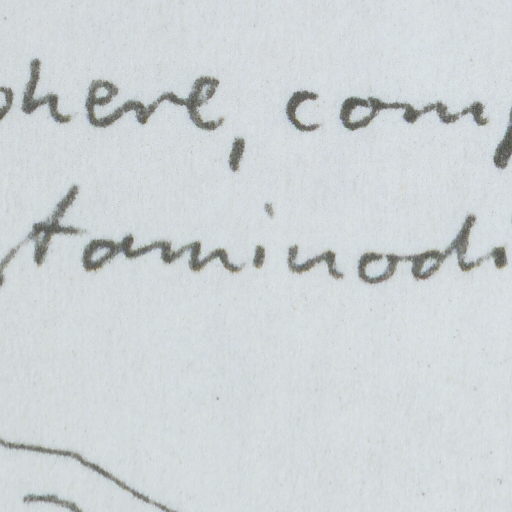 phere, comp
staminodi